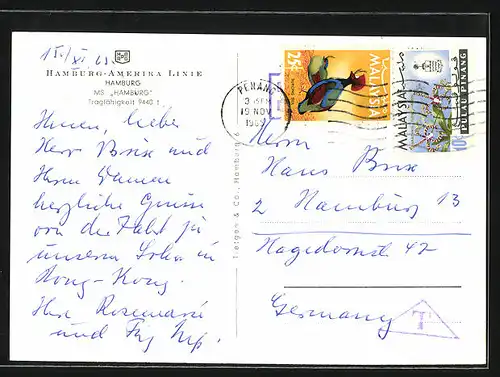 15./XI 69
HAMBURG-AMERIKA LINIE
HAMBURG
MS „HAMBURG"
Tragfähigkeit 9440 t
Ihnen, lieber
Herr Brix und
Ihren Damen
herzliche Grüsse
von der Fahrt zu
unserem Sohn in
Hong-Kong.
Ihre Rosemarie
und
Dietgen & Co., Hamburg 6
PENANG
19 NOV
1969
25¢
MALAYSIA
MALAYSIA
PULAU PINANG
10
Herrn
Hans Brix
2 Hamburg 13
Hagedornst. 47
Germany
T